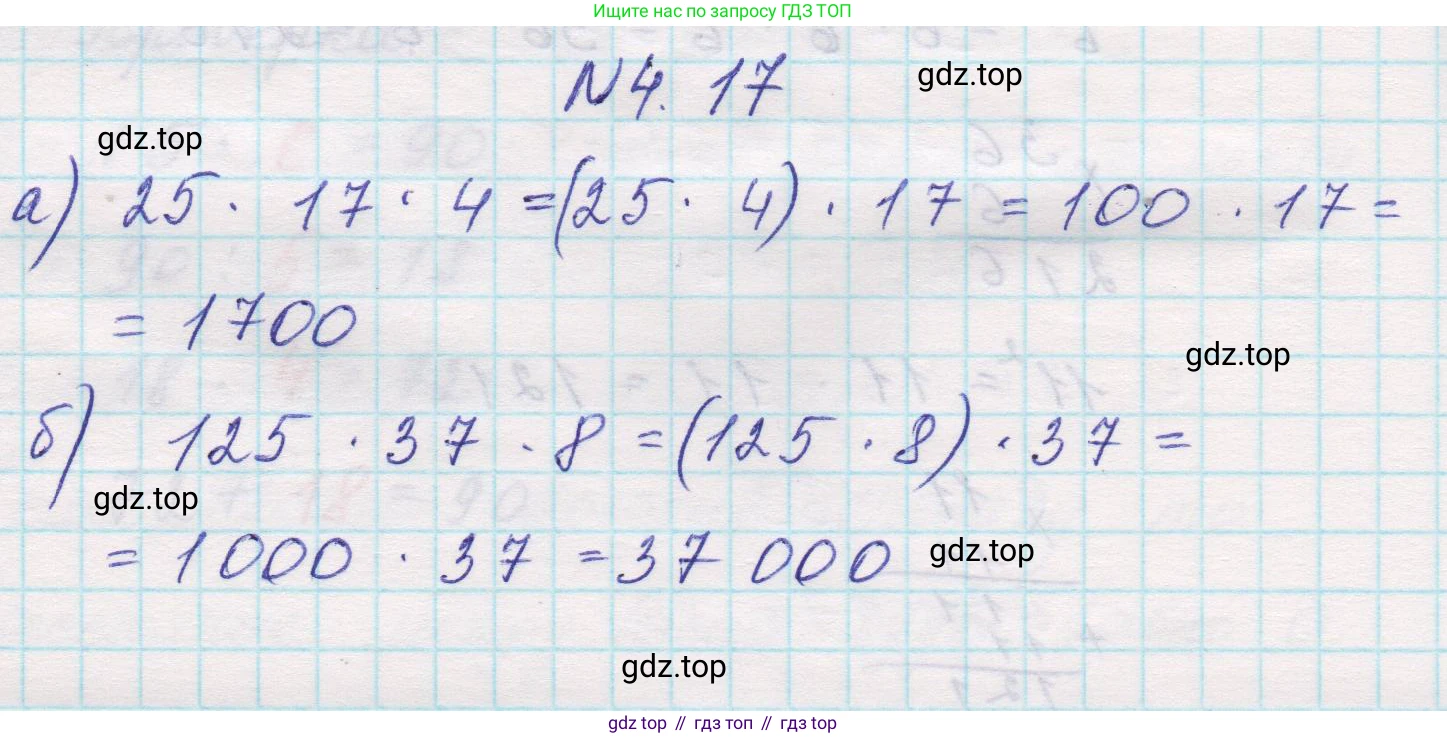 Ищите нас по запросу ГДЗ ТОП
N4. 17
gdz.top
gdz.top
а) 25 · 17 · 4 = (25 · 4) · 17 = 100 · 17 =
= 1700
gdz.top
б) 125 · 37 · 8 = (125 · 8) · 37 =
gdz.top
= 1000 · 37 = 37 000
gdz.top
gdz.top
gdz top // гдз топ // гдз top